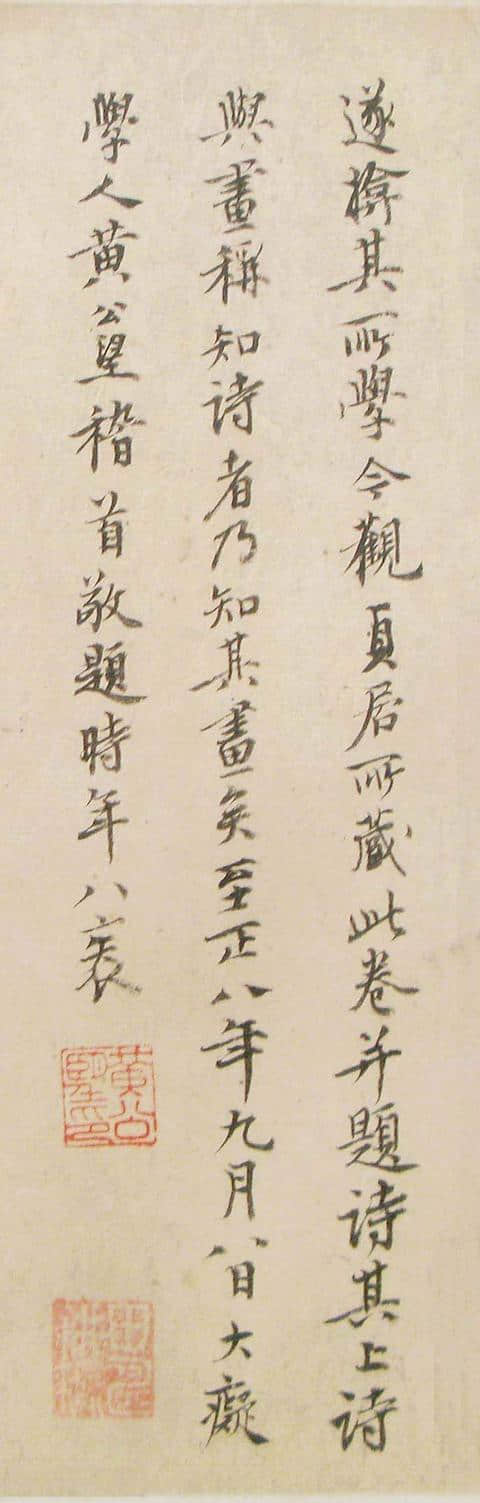 遂捨其所學今觀貞居所藏此卷并題詩其上詩
與畫稱知詩者乃知其畫矣至正八年九月八日大癡
學人黄公望稽首敬題時年八袠
黄公望印